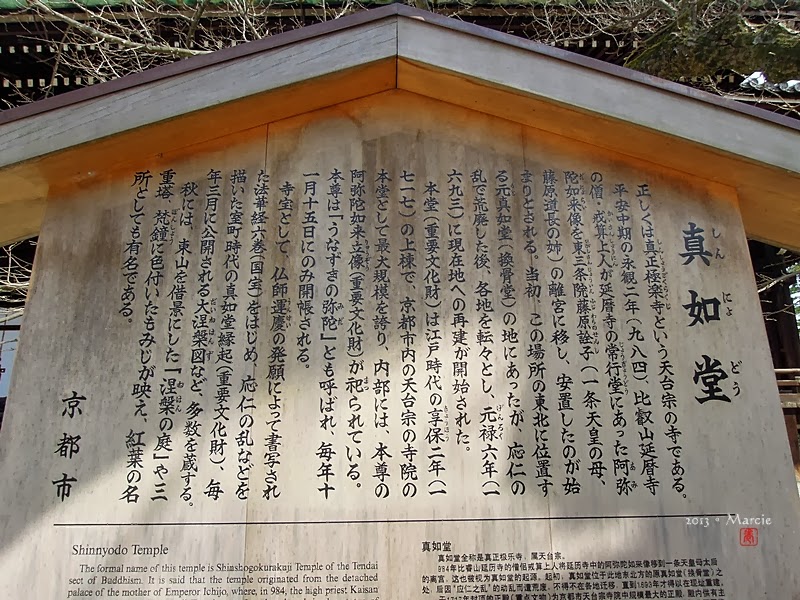 真如堂
しん にょ どう
正しくは真正極楽寺という天台宗の寺である。
平安中期の永観二年(九八四)、比叡山延暦寺
の僧・戒算上人が延暦寺の常行堂にあった阿弥
陀如来像を東三条院藤原詮子(一条天皇の母、
藤原道長の姉)の離宮に移し、安置したのが始
まりとされる。当初、この場所の東北に位置す
る元真如堂(換骨堂)の地にあったが、応仁の
乱で荒廃した後、各地を転々とし、元禄六年(一
六九三)に現在地への再建が開始された。
本堂(重要文化財)は江戸時代の享保二年(一
七一七)の上棟で、京都市内の天台宗の寺院の
本堂として最大規模を誇り、内部には、本尊の
阿弥陀如来立像(重要文化財)が祀られている。
本尊は「うなずきの弥陀」とも呼ばれ、毎年十
一月十五日にのみ開帳される。
寺宝として、仏師運慶の発願によって書写され
た法華経六巻(国宝)をはじめ、応仁の乱などを
描いた室町時代の真如堂縁起(重要文化財)、毎
年三月に公開される大涅槃図など、多数を蔵する。
秋には、東山を借景にした「涅槃の庭」や三
重塔、梵鐘に色付いたもみじが映え、紅葉の名
所としても有名である。
京都市
Shinnyodo Temple
The formal name of this temple is Shinshogokurakuji Temple of the Tendai
sect of Buddhism. It is said that the temple originated from the detached
palace of the mother of Emperor Ichijo, where, in 984, the high priest Kaisan
真如堂
真如堂全称是真正极乐寺,属天台宗。
984年比睿山延历寺的僧侣戒算上人将延历寺中的阿弥陀如来像移到一条天皇母太后
的离宫,这也被视为真如堂的起源。起初,真如堂位于此地东北方的原真如堂(换骨堂)之
处,后因"应仁之乱"的动乱而遭荒废,不得不在各地迁移,直到1693年才得以在现址重建。
2013 • Marcie